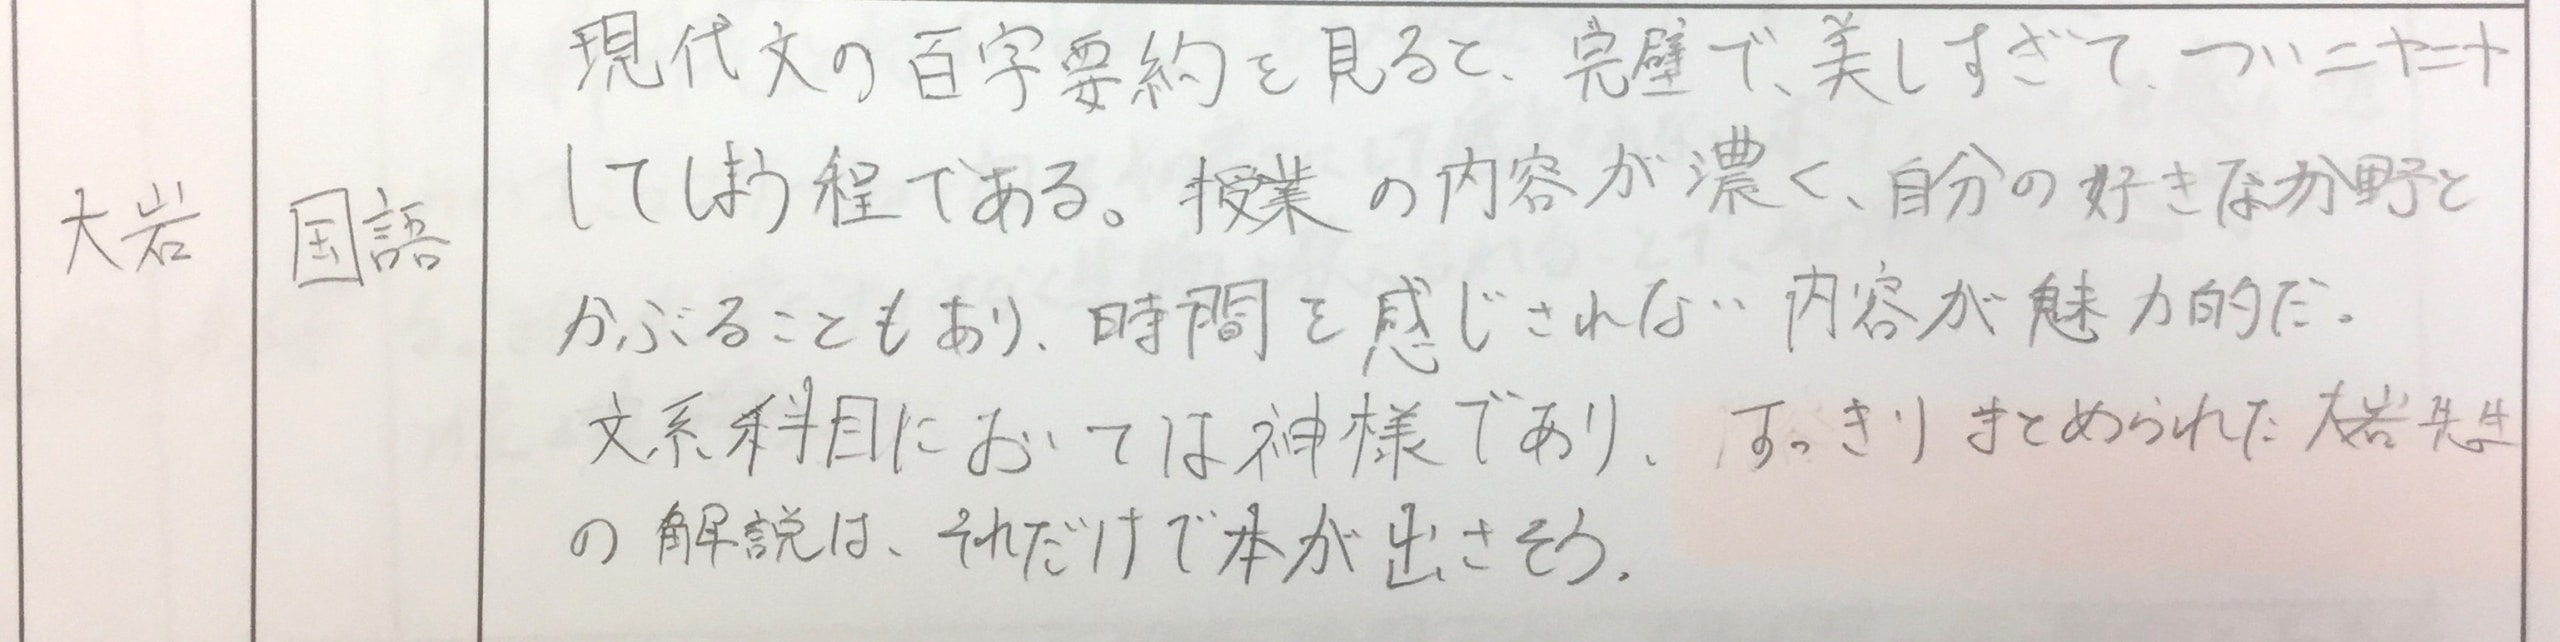 大岩
国語
現代文の百字要約を見ると、完璧で、美しすぎて、ついニヤニヤ
してしまう程である。授業の内容が濃く、自分の好きな分野と
かぶることもあり、時間を感じされない内容が魅力的だ。
文系科目においては神様であり、すっきりまとめられた大岩先生
の解説は、それだけで本が出さそう。